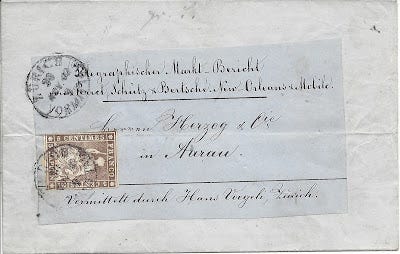 ZÜRICH
VORMITTAG
Telegraphischer Markt-Bericht
Schütz & Bertsche New-Orleans & Mobile.
Herren Herzog & Cie
in Aarau
CENTIMES
FRANCO
Vermittelt durch Hans Voegeli, Zürich.